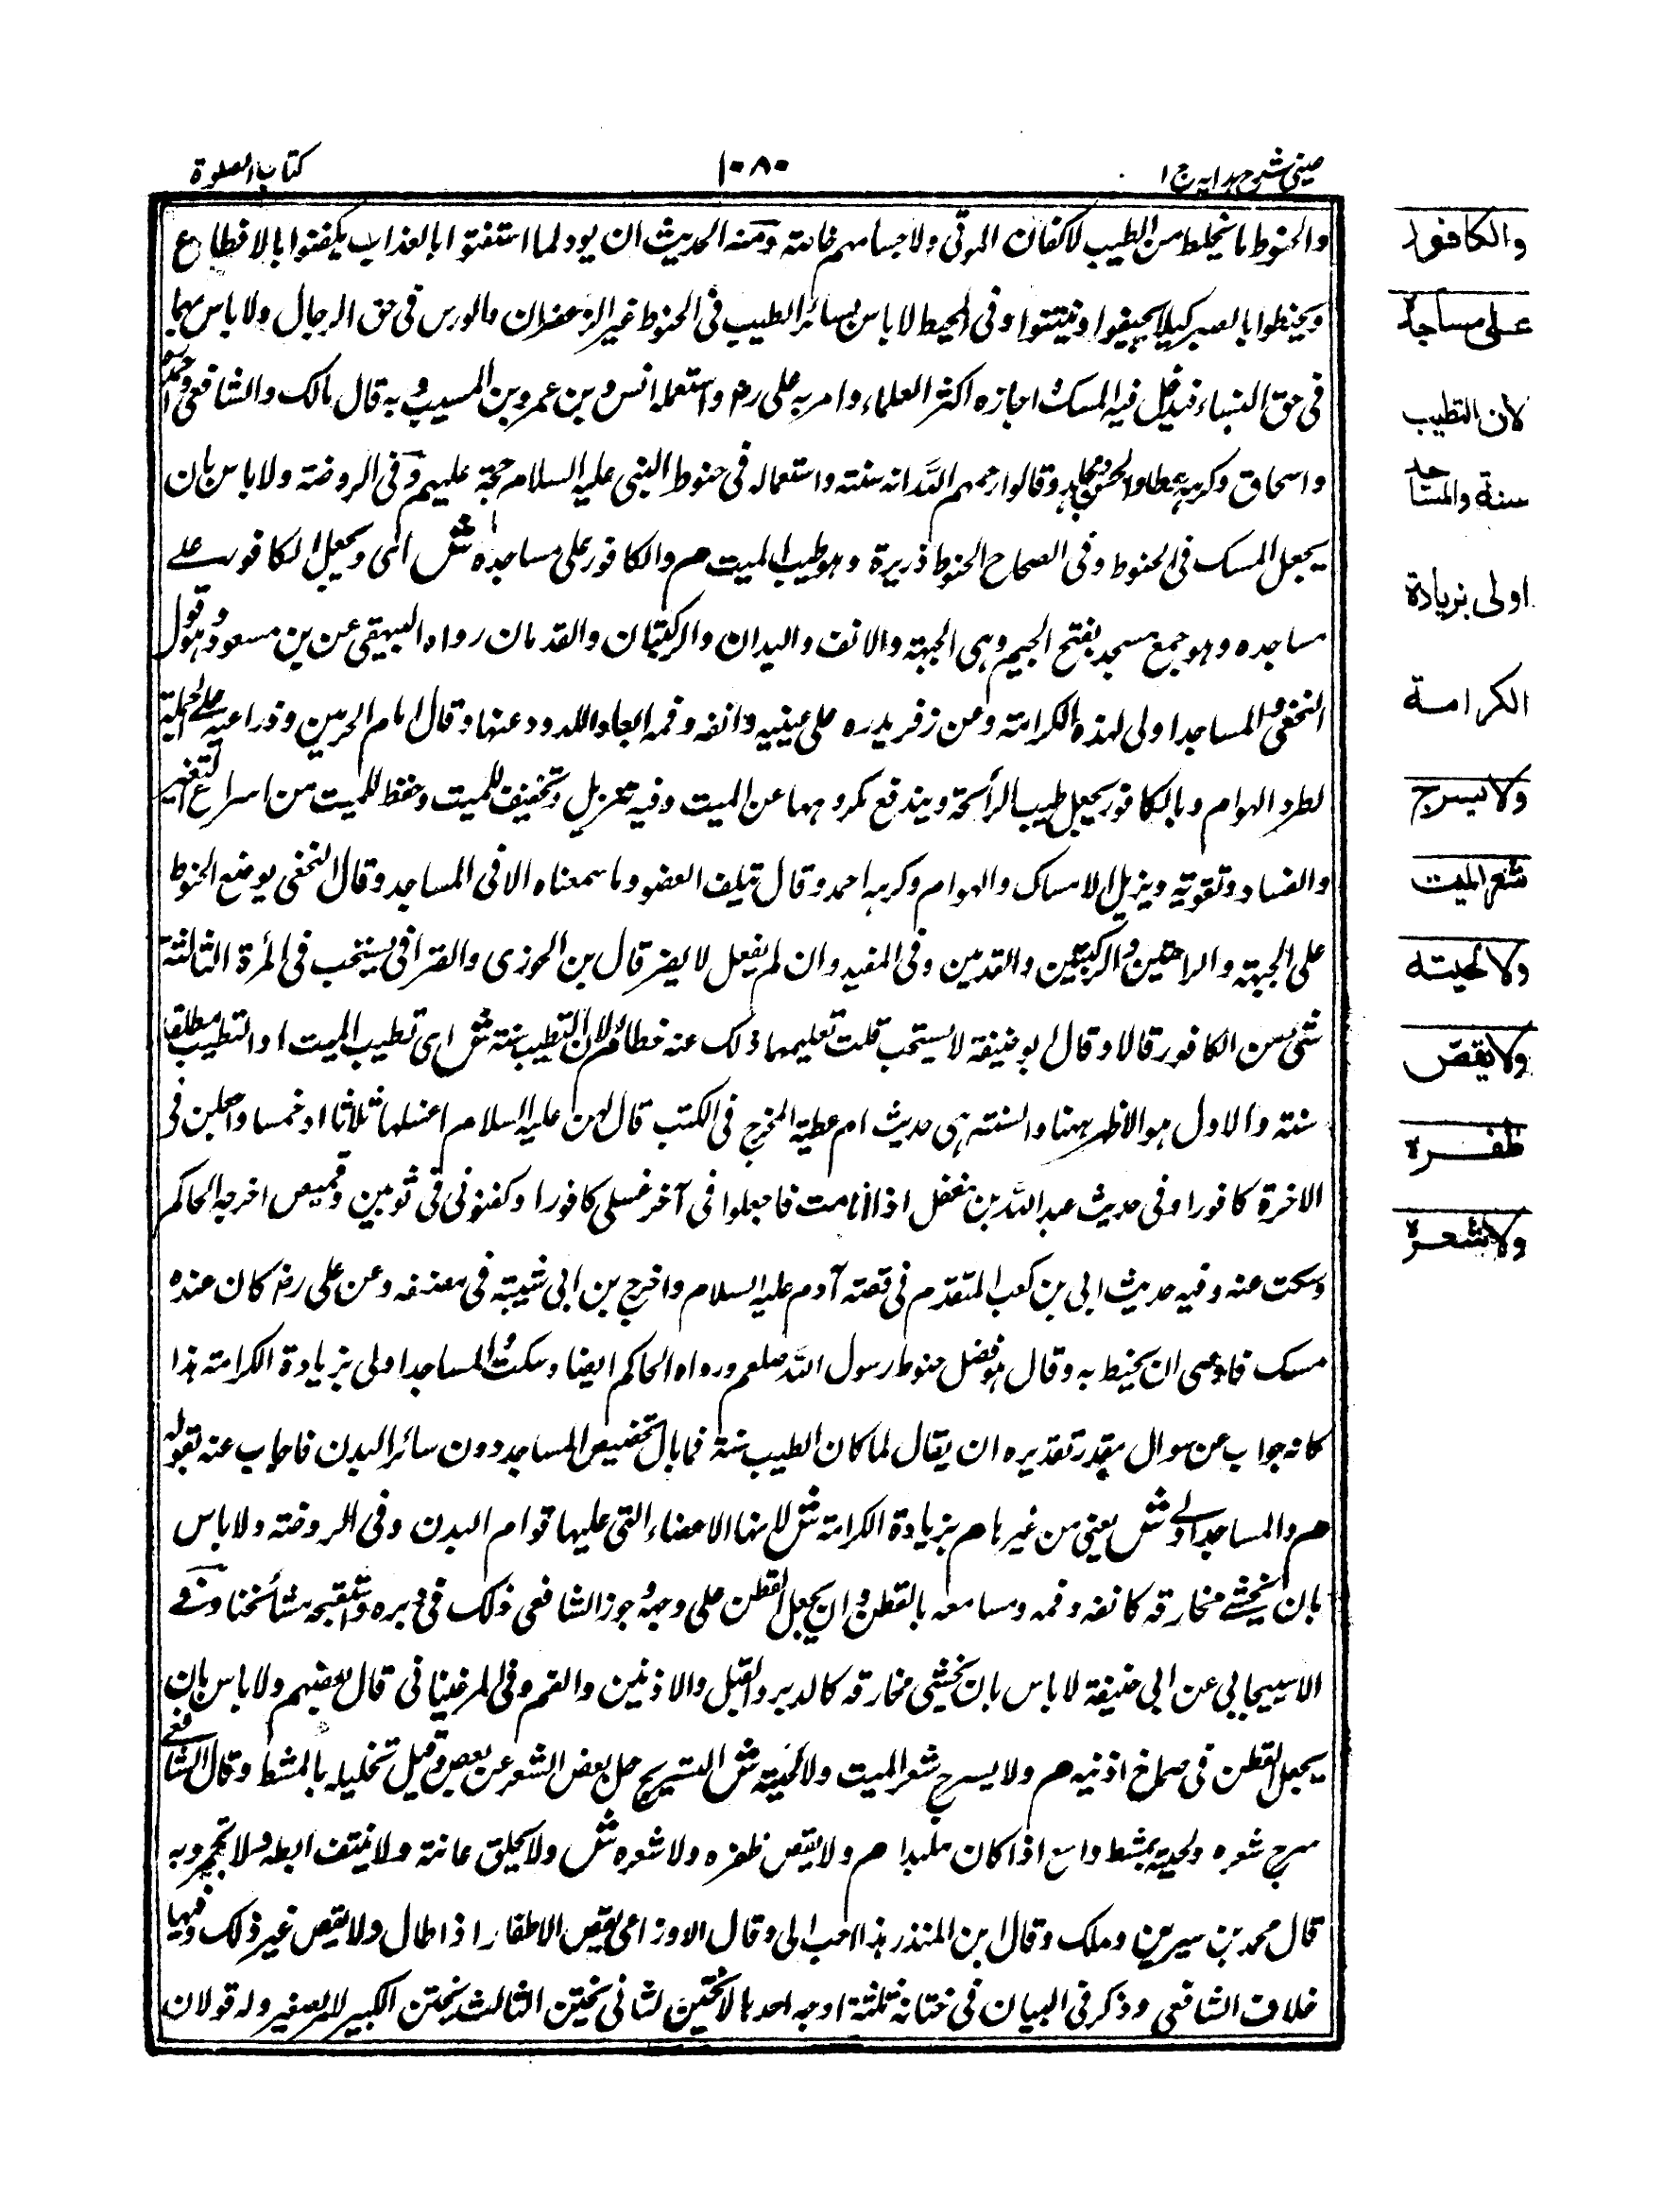 عینی شرح ہدایہ ج ا
۱۰۸۰
کتاب الصلوة
والحنوط ما يخلط من الطيب لاكفان الموتى ولاجسامهم خاصة ومنه الحديث ان ثمود لما استيقنوا بالعذاب تكفنوا بالانطاع
وتحنطوا بالصبر كيلا يجيفوا وينتنوا وفى المحيط لا باس بسائر الطيب فى الحنوط غير الزعفران والورس فى حق الرجال ولا باس بهما
فى حق النساء فيدخل فيه المسك اجازه اكثر العلماء وامر به على رض واستعمله انس وبن عمر وبن المسيب وبه قال مالك والشافعى واحمد
واسحاق وكرهه عطاء والحسن ومجاهد وقالوا رحمهم الله انه سنته واستعماله فى حنوط النبى عليه السلام حجة عليهم وفى الروضة ولا باس بان
يجعل المسك فى الحنوط وفى الصحاح الحنوط ذريرة وهو طيب الميت م والكافور على مساجده ش اى ويجعل الكافور على
مساجده وهو جمع مسجد بفتح الجيم وهى الجبهة والانف واليدان والركبتان والقدمان رواه البيهقى عن بن مسعود وهو قول
النخعى والمساجد اولى لهذه الكرامة وعن زفر يدره على عينيه وانفه وفمه ابعاد اللدود عنها وقال امام الحرمين وذراعيه على الجملة
لطرد الهوام وبالكافور يجعل طيب الرائحة ويندفع مكروهها عن الميت وفيه تعزيل وتخفيف للميت وحفظ للميت من اسراع التغير
والفساد وتقويته ويزيل الامساك والهوام وكرهه احمد وقال تيلف العضو وما سمعناه الا فى المساجد وقال النخعى يوضع الحنوط
على الجبهة والراحتين والركبتين والقدمين وفى المفيد وان لم يفعل لا يضر قال بن الجوزى والقرافى يستحب فى المرة الثالثة
شئ من الكافور قالا وقال ابو حنيفة لا يستحب قلت تعليمهما ذلك عنه خطا م لان التطيب سنة ش اى تطييب الميت او التطيب مطلقا
سنته والاول هو الاظهر ههنا والسنته هى حديث ام عطية المخرج فى الكتب قال لهن عليه السلام اغسلنها ثلاثا او خمسا واجعلن فى
الاخرة كافورا وفى حديث عبد الله بن مغفل اذا انا مت فاجعلوا فى آخر غسلى كافورا وكفنونى فى ثوبين وقميص اخرجه الحاكم
وسكت عنه وفيه حديث ابى بن كعب المتقدم فى قصة آدم عليه السلام واخرج بن ابى شيبة فى مصنفه وعن على رض كان عنده
مسك فاوصى ان يحنط به وقال هو فضل حنوط رسول الله صلعم ورواه الحاكم ايضا وسكت والمساجد اولى بزيادة الكرامة هذا
كانه جواب عن سوال مقدر تقديره ان يقال لما كان الطيب سنة فما بال تخصيص المساجد دون سائر البدن فاجاب عنه بقوله
م والمساجد اولى ش يعنى من غيرها م بزيادة الكرامة ش لانها الاعضاء التى عليها قوام البدن وفى الروضته ولا باس
بان يحشى مخارقه كانفه وفمه ومسامعه بالقطن وان يجعل القطن على وجهه وجوز الشافعى ذلك فى دبره واستقبحه مشائخنا وفى
الاسبيجابى عن ابى حنيفة لا باس بان يحشى مخارقه كالدبر والقبل والاذنين والفم وفى المرغينانى قال بعضهم ولا باس بان
يجعل القطن فى صماخ اذنيه م ولا يسرح شعر الميت ولا لحيته ش التسريح حل بعض الشعر عن بعض وقيل تخليله بالمشط وقال الشافعى
سرح شعره ولحيته بمشط واسع اذا كان ملبدا م ولا يقص ظفره ولا شعره ش ولا يحلق عانته ولا ينتف ابطه ولا تجمير وبه
قال محمد بن سيرين وملك وقال ابن المنذر هذا احب الى وقال الاوزاعى يقص الاظفار اذا طال ولا يقص غير ذلك وفيها
خلاف الشافعى وذكر فى البيان فى ختانه ثلثة اوجه احدها لا يختتن الثانى يختتن الثالث يختتن الكبير لا الصغير وله قولان
والكافور
على مساجده
لان التطيب
سنة والمساجد
اولى بزيادة
الكرامة
ولا يسرح
شعر الميت
ولا لحيته
ولا يقص
ظفره
ولا شعره